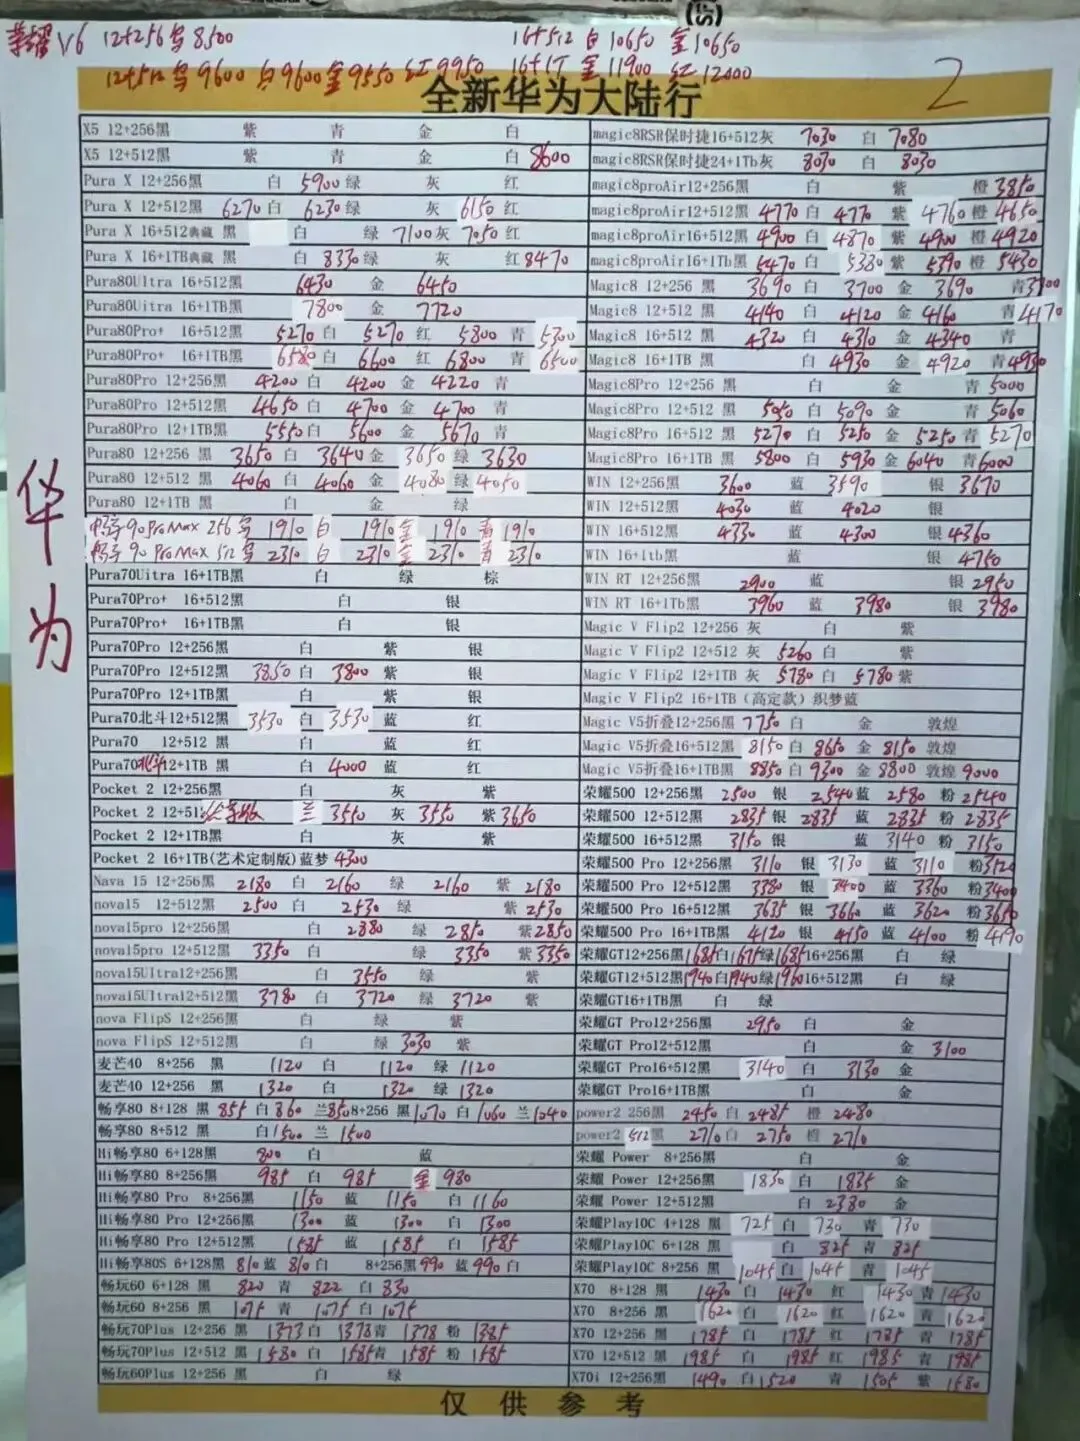 荣耀V6 12+256乌8500 16+512 白10650 金10650
12+512乌9600 白9600 金9550 红9950 16+1T 金11900 红12000
全新华为大陆行 2
华为
X5 12+256黑 紫 青 金 白
X5 12+512黑 紫 青 金 白8600
Pura X 12+256黑 白 5900 绿 灰 红
Pura X 12+512黑 6270 白 6230 绿 灰 6150 红
Pura X 16+512典藏 黑 白 绿 7100 灰 7050 红
Pura X 16+1TB典藏 黑 白 8330 绿 灰 红8470
Pura80Ultra 16+512黑 6430 金 6450
Pura80Ultra 16+1TB黑 7800 金 7720
Pura80Pro+ 16+512黑 5270 白 5270 红 5800 青 5300
Pura80Pro+ 16+1TB黑 6580 白 6600 红 6800 青 6500
Pura80Pro 12+256黑 4200 白 4200 金 4220 青
Pura80Pro 12+512黑 4650 白 4700 金 4700 青
Pura80Pro 12+1TB黑 5550 白 5600 金 5670 青
Pura80 12+256 黑 3650 白 3640 金 3650 绿 3630
Pura80 12+512 黑 4060 白 4060 金 4080 绿 4050
Pura80 12+1TB 黑 白 金 绿
畅享90ProMax 256 乌 1910 白 1910 金 1910 青 1910
畅享90 ProMax 512 乌 2310 白 2310 金 2310 青 2310
Pura70Uitra 16+1TB黑 白 绿 棕
Pura70Pro+ 16+512黑 白 银
Pura70Pro+ 16+1TB黑 白 银
Pura70Pro 12+256黑 白 紫 银
Pura70Pro 12+512黑 3850 白 3800 紫 银
Pura70Pro 12+1TB黑 白 紫 银
Pura70北斗12+512黑 3530 白 3530 蓝 红
Pura70 12+512 黑 白 蓝 红
Pura70北斗12+1TB 黑 白 4000 蓝 红
Pocket 2 12+256黑 白 灰 紫
Pocket 2 12+512 兰 3550 灰 3550 紫 3650
Pocket 2 12+1TB黑 白 灰 紫
Pocket 2 16+1TB(艺术定制版)蓝梦 4300
Nava 15 12+256黑 2180 白 2160 绿 2160 紫 2180
nova15 12+512黑 2500 白 2530 绿 紫 2530
nova15pro 12+256黑 白 2880 绿 2850 紫2850
nova15pro 12+512黑 3350 白 绿 3350 紫3350
nova15UItra12+256黑 白 3550 绿 紫
nova15UItra12+512黑 3780 白 3720 绿 3720 紫
nova FlipS 12+256黑 白 绿 紫
nova FlipS 12+512黑 白 绿 3030 紫
麦芒40 8+256 黑 1120 白 1120 绿 1120
麦芒40 12+256 黑 1320 白 1320 绿 1320
畅享80 8+128 黑 855 白 860 兰850 8+256 黑1070 白1060 兰1040
畅享80 8+512 黑 白1500 兰 1500
Hi畅享80 6+128黑 800 白 蓝
Hi畅享80 8+256黑 985 白 985 金 980
Hi畅享80 Pro 8+256黑 1150 蓝 1150 白 1160
Hi畅享80 Pro 12+256黑 1300 蓝 1300 白 1300
Hi畅享80 Pro 12+512黑 1585 蓝 1585 白 1585
Hi畅享80S 6+128黑 810 蓝 810 白 8+256黑 990 蓝 990 白
畅玩60 6+128 黑 820 青 822 白 830
畅玩60 8+256 黑 1075 青 1075 白 1075
畅玩70Plus 12+256 黑 1373 白 1378 青 1378 粉 1385
畅玩70Plus 12+512 黑 1580 白 1585 青 1585 粉 1585
畅玩60Plus 12+256 黑 白 绿
magic8RSR保时捷16+512灰 7030 白 7080
magic8RSR保时捷24+1Tb灰 8030 白 8030
magic8proAir12+256黑 白 紫 橙 3850
magic8proAir12+512黑 4770 白 4770 紫 4760 橙 4650
magic8proAir16+512黑 4900 白 4870 紫 4900 橙 4920
magic8proAir16+1Tb黑 5470 白 5380 紫 5390 橙 5430
Magic8 12+256 黑 3690 白 3700 金 3690 青3700
Magic8 12+512 黑 4140 白 4120 金 4160 青4170
Magic8 16+512 黑 4320 白 4310 金 4340 青
Magic8 16+1TB 黑 白 4930 金 4920 青4930
Magic8Pro 12+256 黑 白 金 青 5000
Magic8Pro 12+512 黑 5050 白 5090 金 青 5060
Magic8Pro 16+512 黑 5270 白 5250 金 5250 青 5270
Magic8Pro 16+1TB 黑 5800 白 5930 金 6040 青6000
WIN 12+256黑 3600 蓝 3590 银 3670
WIN 12+512黑 4030 蓝 4020 银
WIN 16+512黑 4330 蓝 4300 银 4360
WIN 16+1tb黑 蓝 银 4750
WIN RT 12+256黑 2900 蓝 银 2950
WIN RT 16+1Tb黑 3960 蓝 3980 银 3980
Magic V Flip2 12+256 灰 白 紫
Magic V Flip2 12+512 灰 5260 白 紫
Magic V Flip2 12+1TB 灰 5780 白 5780 紫
Magic V Flip2 16+1TB（高定款）织梦蓝
Magic V5折叠12+256黑 7750 白 金 敦煌
Magic V5折叠16+512黑 8150 白 8650 金 8150 敦煌
Magic V5折叠16+1TB黑 8850 白 9300 金 8800 敦煌 9000
荣耀500 12+256黑 2500 银 2540 蓝 2580 粉 2540
荣耀500 12+512黑 2835 银 2835 蓝 2835 粉 2835
荣耀500 16+512黑 3150 银 蓝 3140 粉 3150
荣耀500 Pro 12+256黑 3110 银 3130 蓝 3110 粉3120
荣耀500 Pro 12+512黑 3380 银 3400 蓝 3360 粉3400
荣耀500 Pro 16+512黑 3635 银 3660 蓝 3620 粉3650
荣耀500 Pro 16+1TB黑 4120 银 4150 蓝 4100 粉4190
荣耀GT12+256黑1685白1675绿1685 16+256黑 白 绿
荣耀GT12+512黑1940白1940绿1960 16+512黑 白 绿
荣耀GT16+1TB黑 白 绿
荣耀GT Pro12+256黑 2950 白 金
荣耀GT Pro12+512黑 白 金 3100
荣耀GT Pro16+512黑 3140 白 3130 金
荣耀GT Pro16+1TB黑 白 金
power2 256黑 2450 白 2485 橙 2480
power2 512黑 2710 白 2750 橙 2710
荣耀 Power 8+256黑 白 金
荣耀 Power 12+256黑 1830 白 1835 金
荣耀 Power 12+512黑 白 2380 金
荣耀Play10C 4+128 黑 725 白 730 青 730
荣耀Play10C 6+128 黑 白 825 青 825
荣耀Play10C 8+256 黑 1045 白 1045 青 1045
X70 8+128 黑 1430 白 1430 红 1430 青 1430
X70 8+256 黑 1620 白 1620 红 1620 青 1620
X70 12+256 黑 1785 白 1785 红 1785 青 1785
X70 12+512 黑 1985 白 1985 红 1985 青 1985
X70i 12+256黑 1490 白1520 青 1505 紫 1580
仅供参考